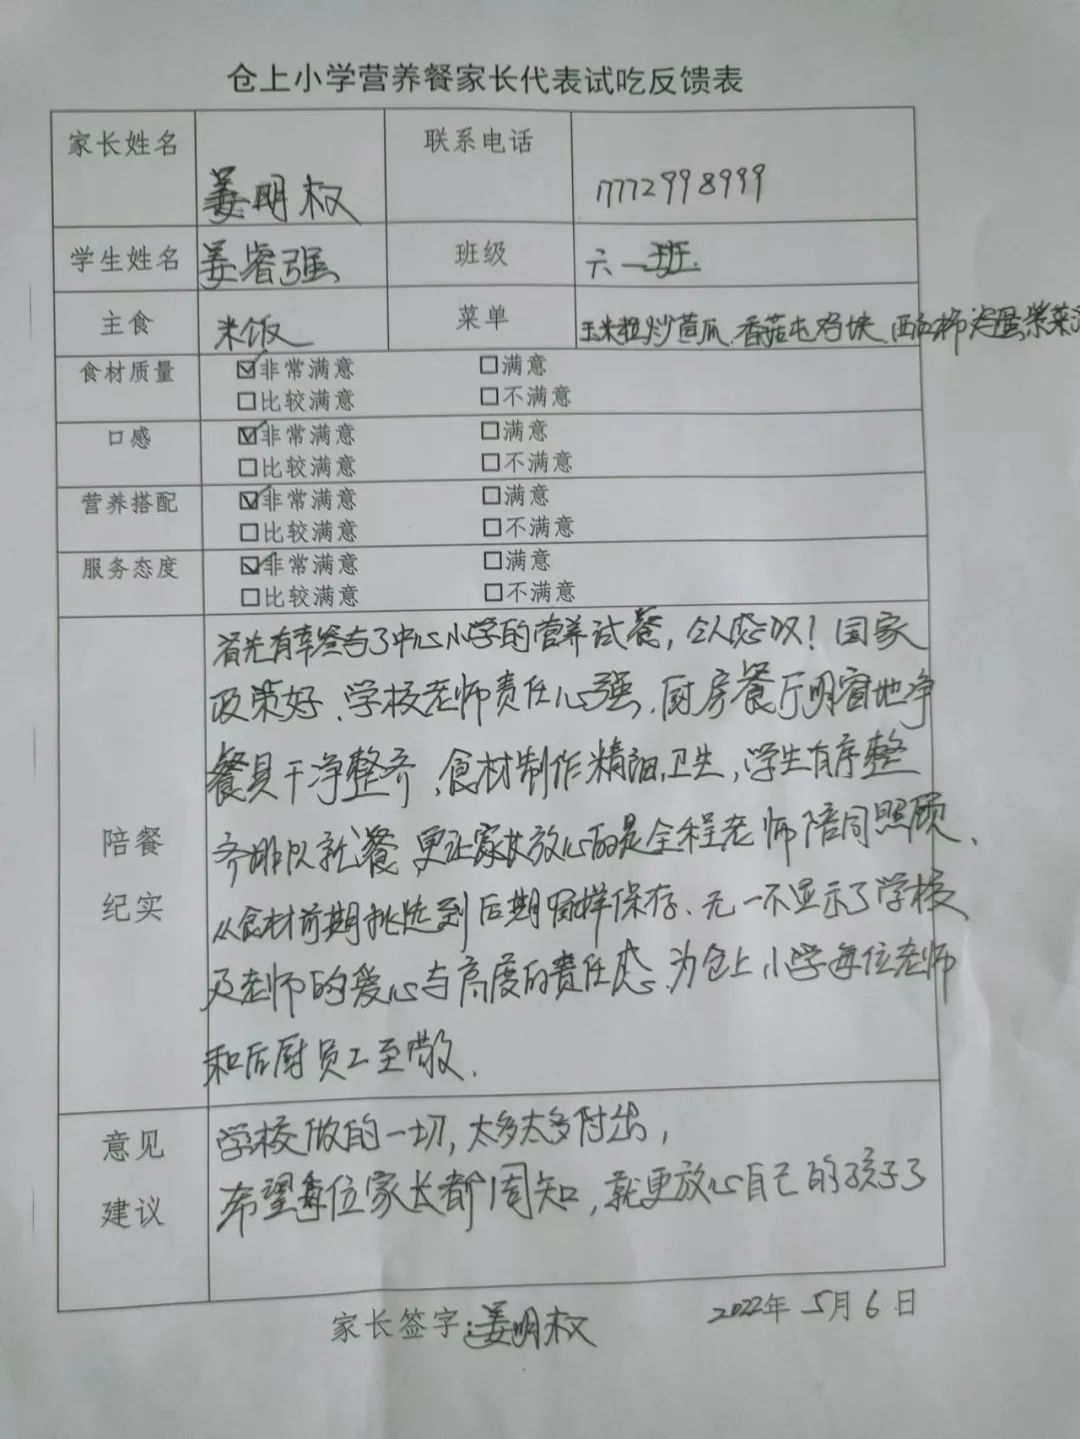 仓上小学营养餐家长代表试吃反馈表
家长姓名 姜明权 联系电话 17772998999
学生姓名 姜睿强 班级 六一班
主食 米饭 菜单 玉米粒炒黄瓜、香菇屯鸡块、西红柿炒蛋、紫菜
食材质量 ☑非常满意 □满意
□比较满意 □不满意
口感 ☑非常满意 □满意
□比较满意 □不满意
营养搭配 ☑非常满意 □满意
□比较满意 □不满意
服务态度 ☑非常满意 □满意
□比较满意 □不满意
陪餐
纪实
首先有幸参与了中心小学的营养试餐,令人感叹!国家
政策好、学校老师责任心强、厨房餐厅明窗地净
餐具干净整齐,食材制作精细,卫生,学生有序整
齐排队就餐,更让家长放心的是全程老师陪同照顾、
从食材前期挑选到后期留样保存、无一不显示了学校
及老师的爱心与高度的责任感、为仓上小学每位老师
和后厨员工至敬.
意见
建议
学校做的一切,太多太多付出,
希望每位家长都周知,就更放心自己的孩子了
家长签字:姜明权 2022年 5月6日